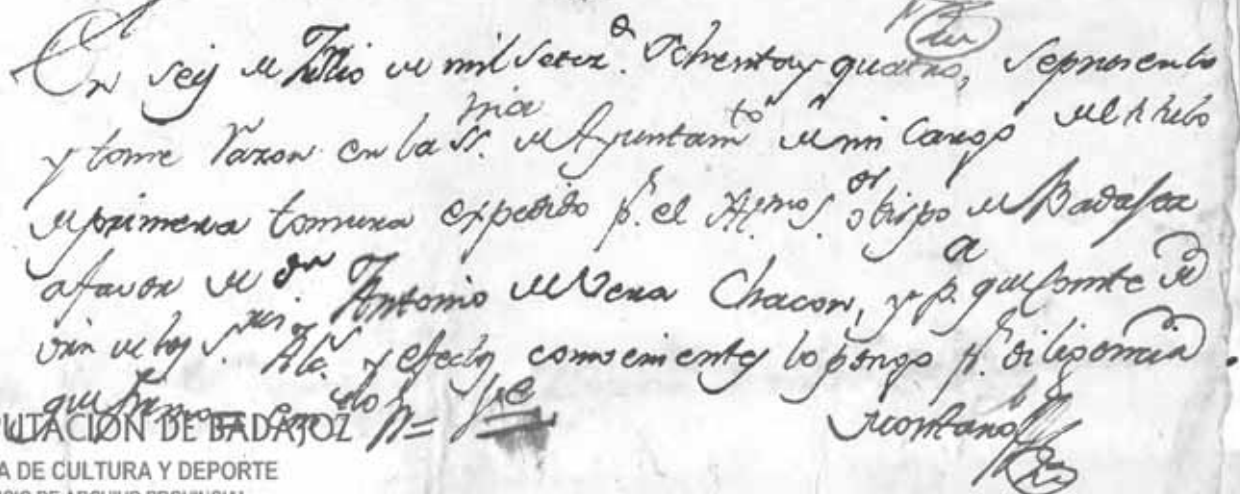 En seis de Julio de mil setez.s Ochenta y quatro, se presento
y tome Razon en la SS.ria de Ayuntam.to de mi Cargo del titulo
de primera tonsura expedido p.r el Yll.mo S.or Obispo de Badajoz
a favor de d.n Antonio de Vera Chacon, y p.a que conste de
orn de los S.res Alc.s y efectos convenientes lo pongo p.r diligencia
que firmo =
Montano
DIPUTACIÓN DE BADAJOZ
A DE CULTURA Y DEPORTE